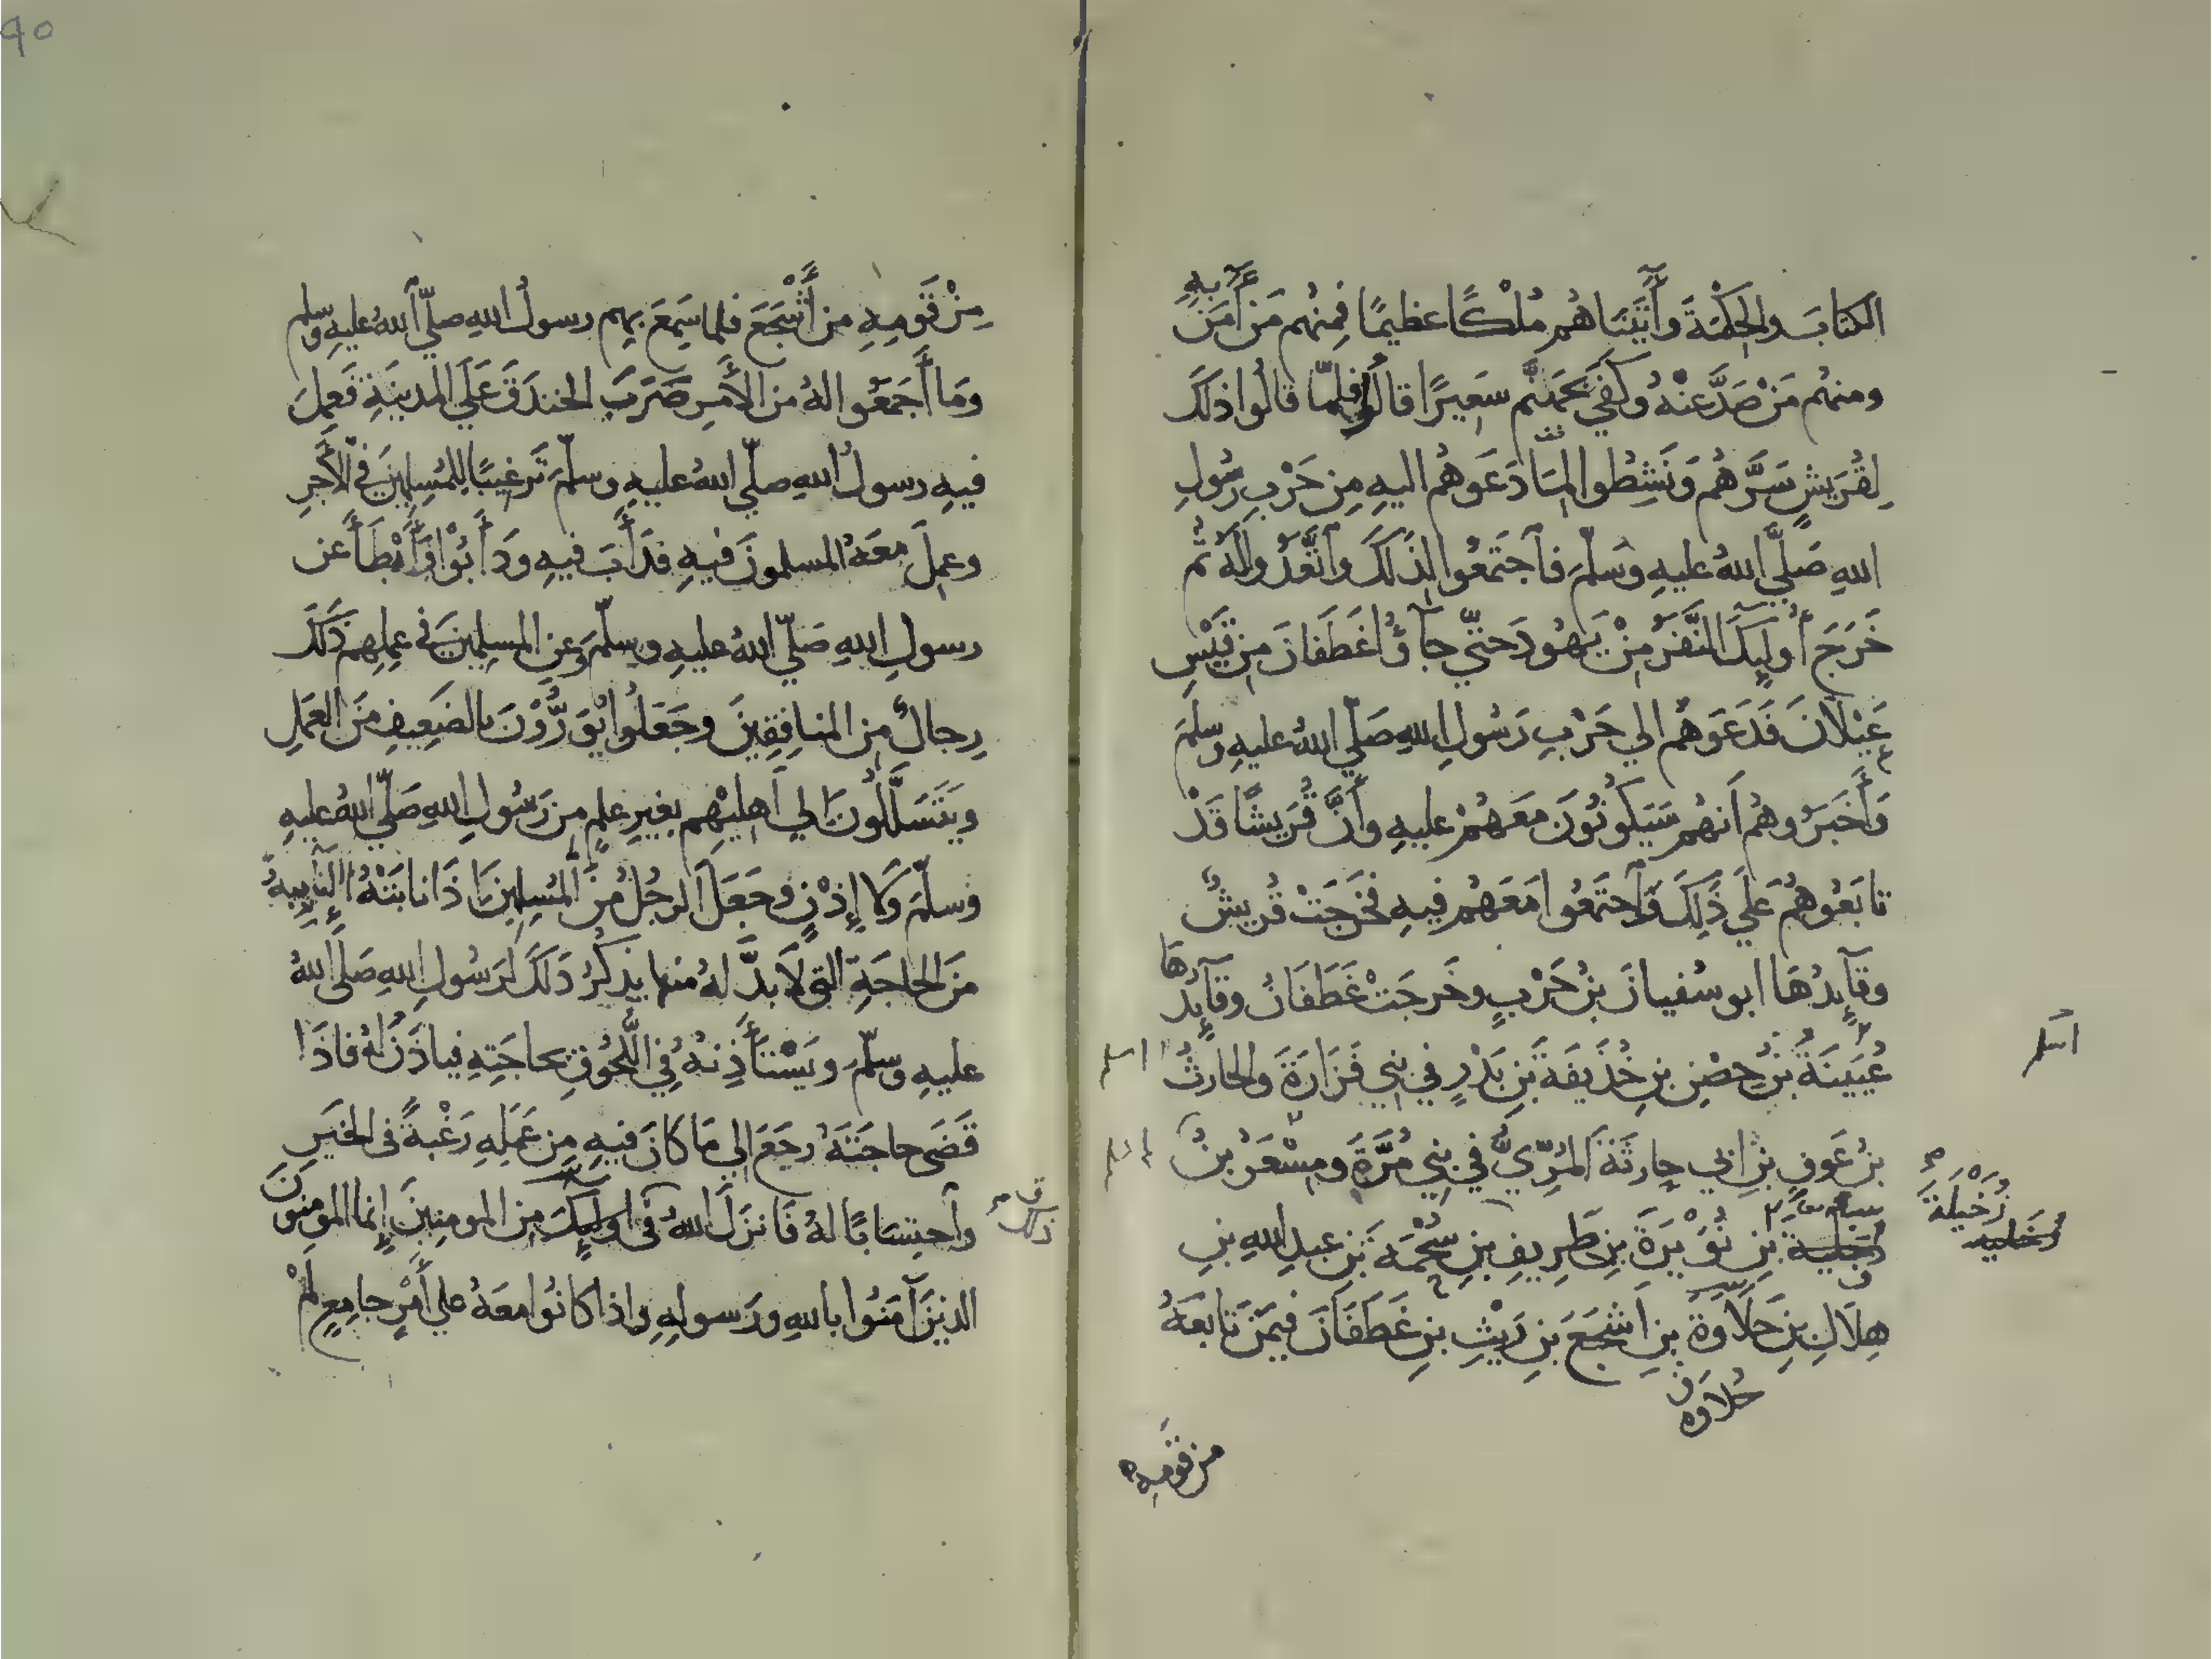 الكتابَ والحِكْمَةَ وآتَيْنَاهُم مُلْكًا عظيمًا فمِنْهُم مَن آمَنَ بِهِ
ومنهُم مَنْ صَدَّ عَنْهُ وكَفَي بجَهَنَّم سَعِيرًا قال فلمّا قالُوا ذلكَ
لِقُرَيْشٍ سَرَّهُم وَنَشِطُوا لِمَا دَعَوهُم اليهِ مِن حَرْبِ رسُولِ
اللهِ صَلَّي اللهُ عليهِ وسَلّمَ فآجتَمَعُوا لِذَلكَ وآتَّعَدُوا لَهُ ثم
خَرَجَ أُولَيِكَ النَّفَرُ مِنْ يَهُودَ حتي جآؤُا غَطَفَانَ مِن قَيْسِ
عَيْلَانَ فَدَعَوهُم الي حَرْبِ رَسُولِ اللهِ صَلّي اللهُ عليهِ وسلّمَ
وَأَخبَرُوهُم أنهُم سَيَكُونُونَ مَعَهُمْ عليهِ وأنَّ قُرَيشًا قَدْ
تابَعُوهُم عَلَي ذَلِكَ وآجتَمَعُوا مَعَهُم فيهِ فخَرَجَتْ قُرَيشٌ
وقآيِدُهَا ابو سُفيانَ بنُ حَرْبٍ وخَرجَتْ غَطَفَانُ وقآيِدُهَا
عُيَيْنَةُ بنُ حِصْنِ بنِ حُذَيفَةَ بنِ بَدْرٍ في بَنِي فَزَارَةَ والحارثُ
بنُ عَوفِ بنِ ابي حارِثَةَ المُرِّيُّ في بَنِي مُرَّةَ ومِسْعَرُ بنُ
رُخَيْلَةَ
بنِ نُوَيْرَةَ بنِ طَرِيفِ بنِ سُحْمَةَ بنِ عبدِ اللهِ بنِ
هِلَالِ بنِ خَلَاوَةَ بنِ أشجَعَ بنِ رَيْثِ بنِ غَطَفَانَ فيمَن تَابعَهُ
خلاوه
من قومه
٩٥
مِنْ قَومِهِ من أَشْجَعَ فلما سَمِعَ بهِم رسولُ اللهِ صلّي اللهُ عليهِ وسلم
وَمَا أَجمَعُوا لهُ من الأَمرِ ضَرَبَ الخندَقَ عَلَي المدينَةِ فَعمِلَ
فيهِ رسولُ اللهِ صلّي اللهُ عليهِ وسلّمَ تَرغيبًا للمُسلِمينَ في الأَجرِ
وعمِلَ معَهُ المسلمونَ فيهِ فدَأَبَ فيهِ وَدَأَبُوا وأَبْطَأَ عن
رسولِ اللهِ صَلّي اللهُ عليهِ وسلّمَ وعنِ المسلِمينَ في عملِهِم ذَلكَ
رِجالٌ مِن المنافِقِينَ وجَعَلُوا يُوَرُّوْنَ بالضَعِيفِ مِنَ العَمَلِ
ويَتَسَلَّلُونَ الي أهلِيْهِم بغيرِ علمٍ من رَسُولِ اللهِ صَلّي اللهُ عليهِ
وسلّمَ ولا إِذْنٍ وجَعَلَ الرجُلُ مِنَ المُسلِمِينَ اذَا نابَتْهُ النآيِبةُ
مِنَ الحاجَةِ التي لَابدَّ لهُ منها يذكُرُ ذَلكَ لرَسُولِ اللهِ صَلّي اللهُ
عليهِ وسلّمَ ويَسْتَأذِنهُ في اللُّحُوقِ بحاجَتِهِ فياذَنُ لهُ فاذَا
قَضَى حاجَتَهُ رجَعَ الي مَا كانَ فيهِ مِن عَمَلِهِ رَغْبةً في الخَيرِ
وآحتِسَابًا لهُ فَانزَلَ اللهُ في اولَيِكَ مِن المومِنِينَ إنما المومِنونَ
الذينَ آمَنُوا باللهِ ورَسولِهِ واذا كانُوا معَهُ علي أَمْرٍ جامِعٍ لَمْ